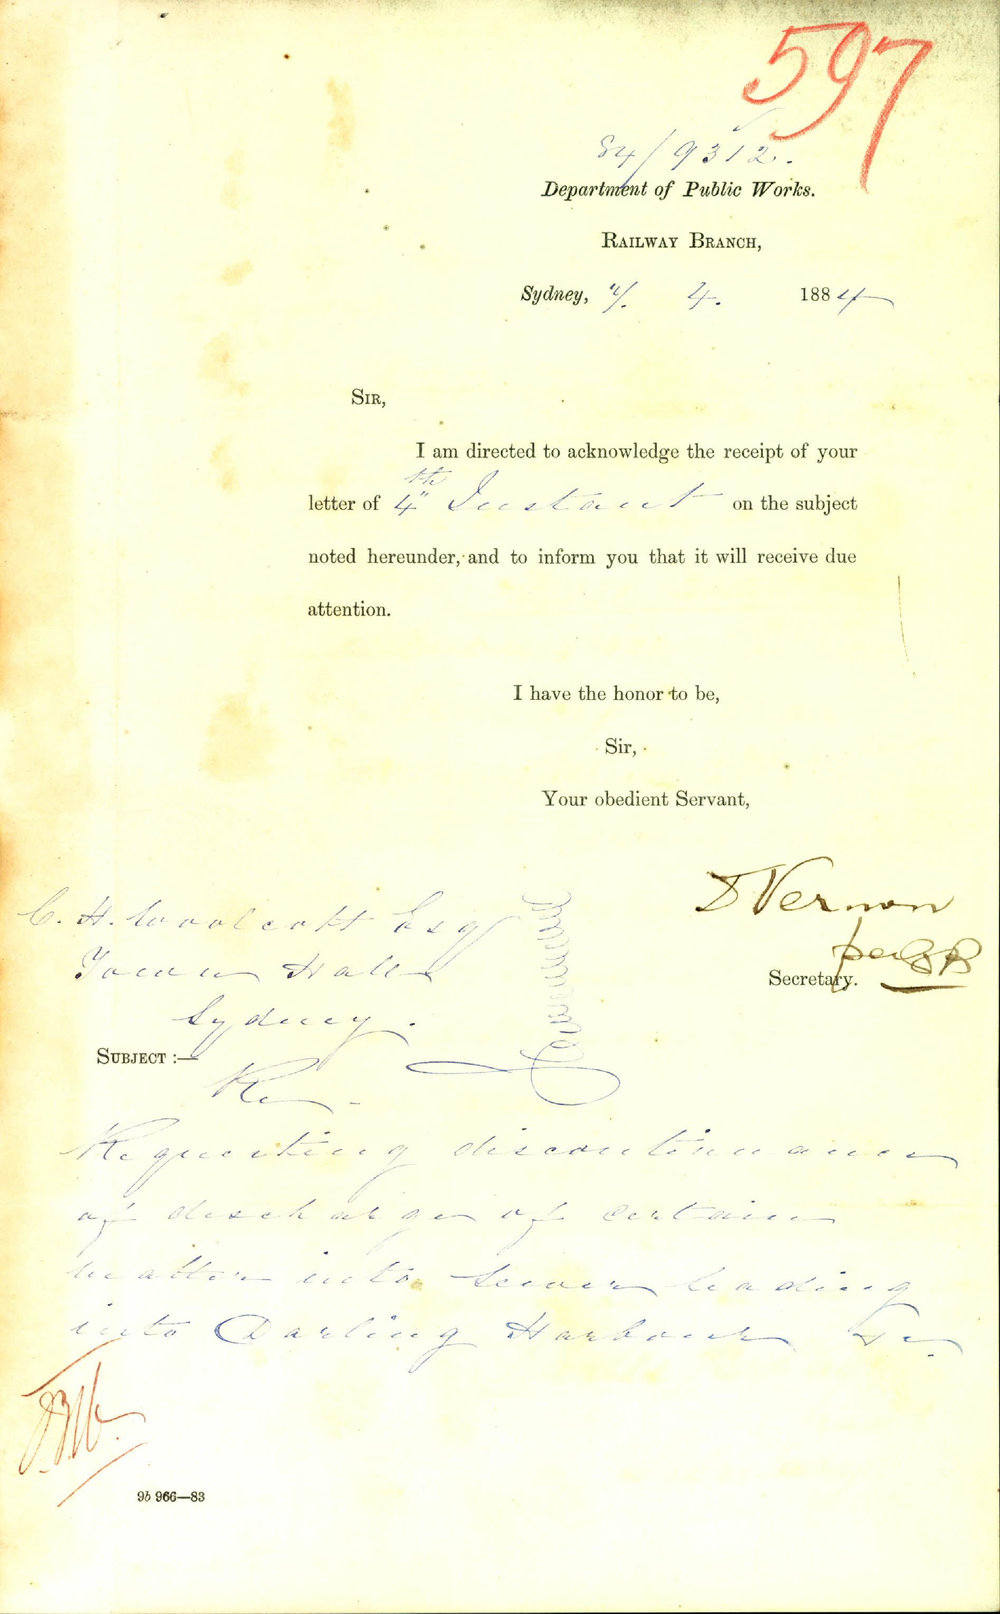 597
84/9312.
Department of Public Works.
RAILWAY BRANCH,
Sydney, 4. 1884
SIR,
I am directed to acknowledge the receipt of your
letter of 4th Instant on the subject
noted hereunder, and to inform you that it will receive due
attention.
I have the honor to be,
Sir,
Your obedient Servant,
D Vernon
per
Secretary.
C. H. Woolcott Esq
Town Hall
Sydney.
SUBJECT :—
Re
Requesting discontinuance
of discharge of certain
matter into Sewer leading
into Darling Harbour &c.
9b 966—83